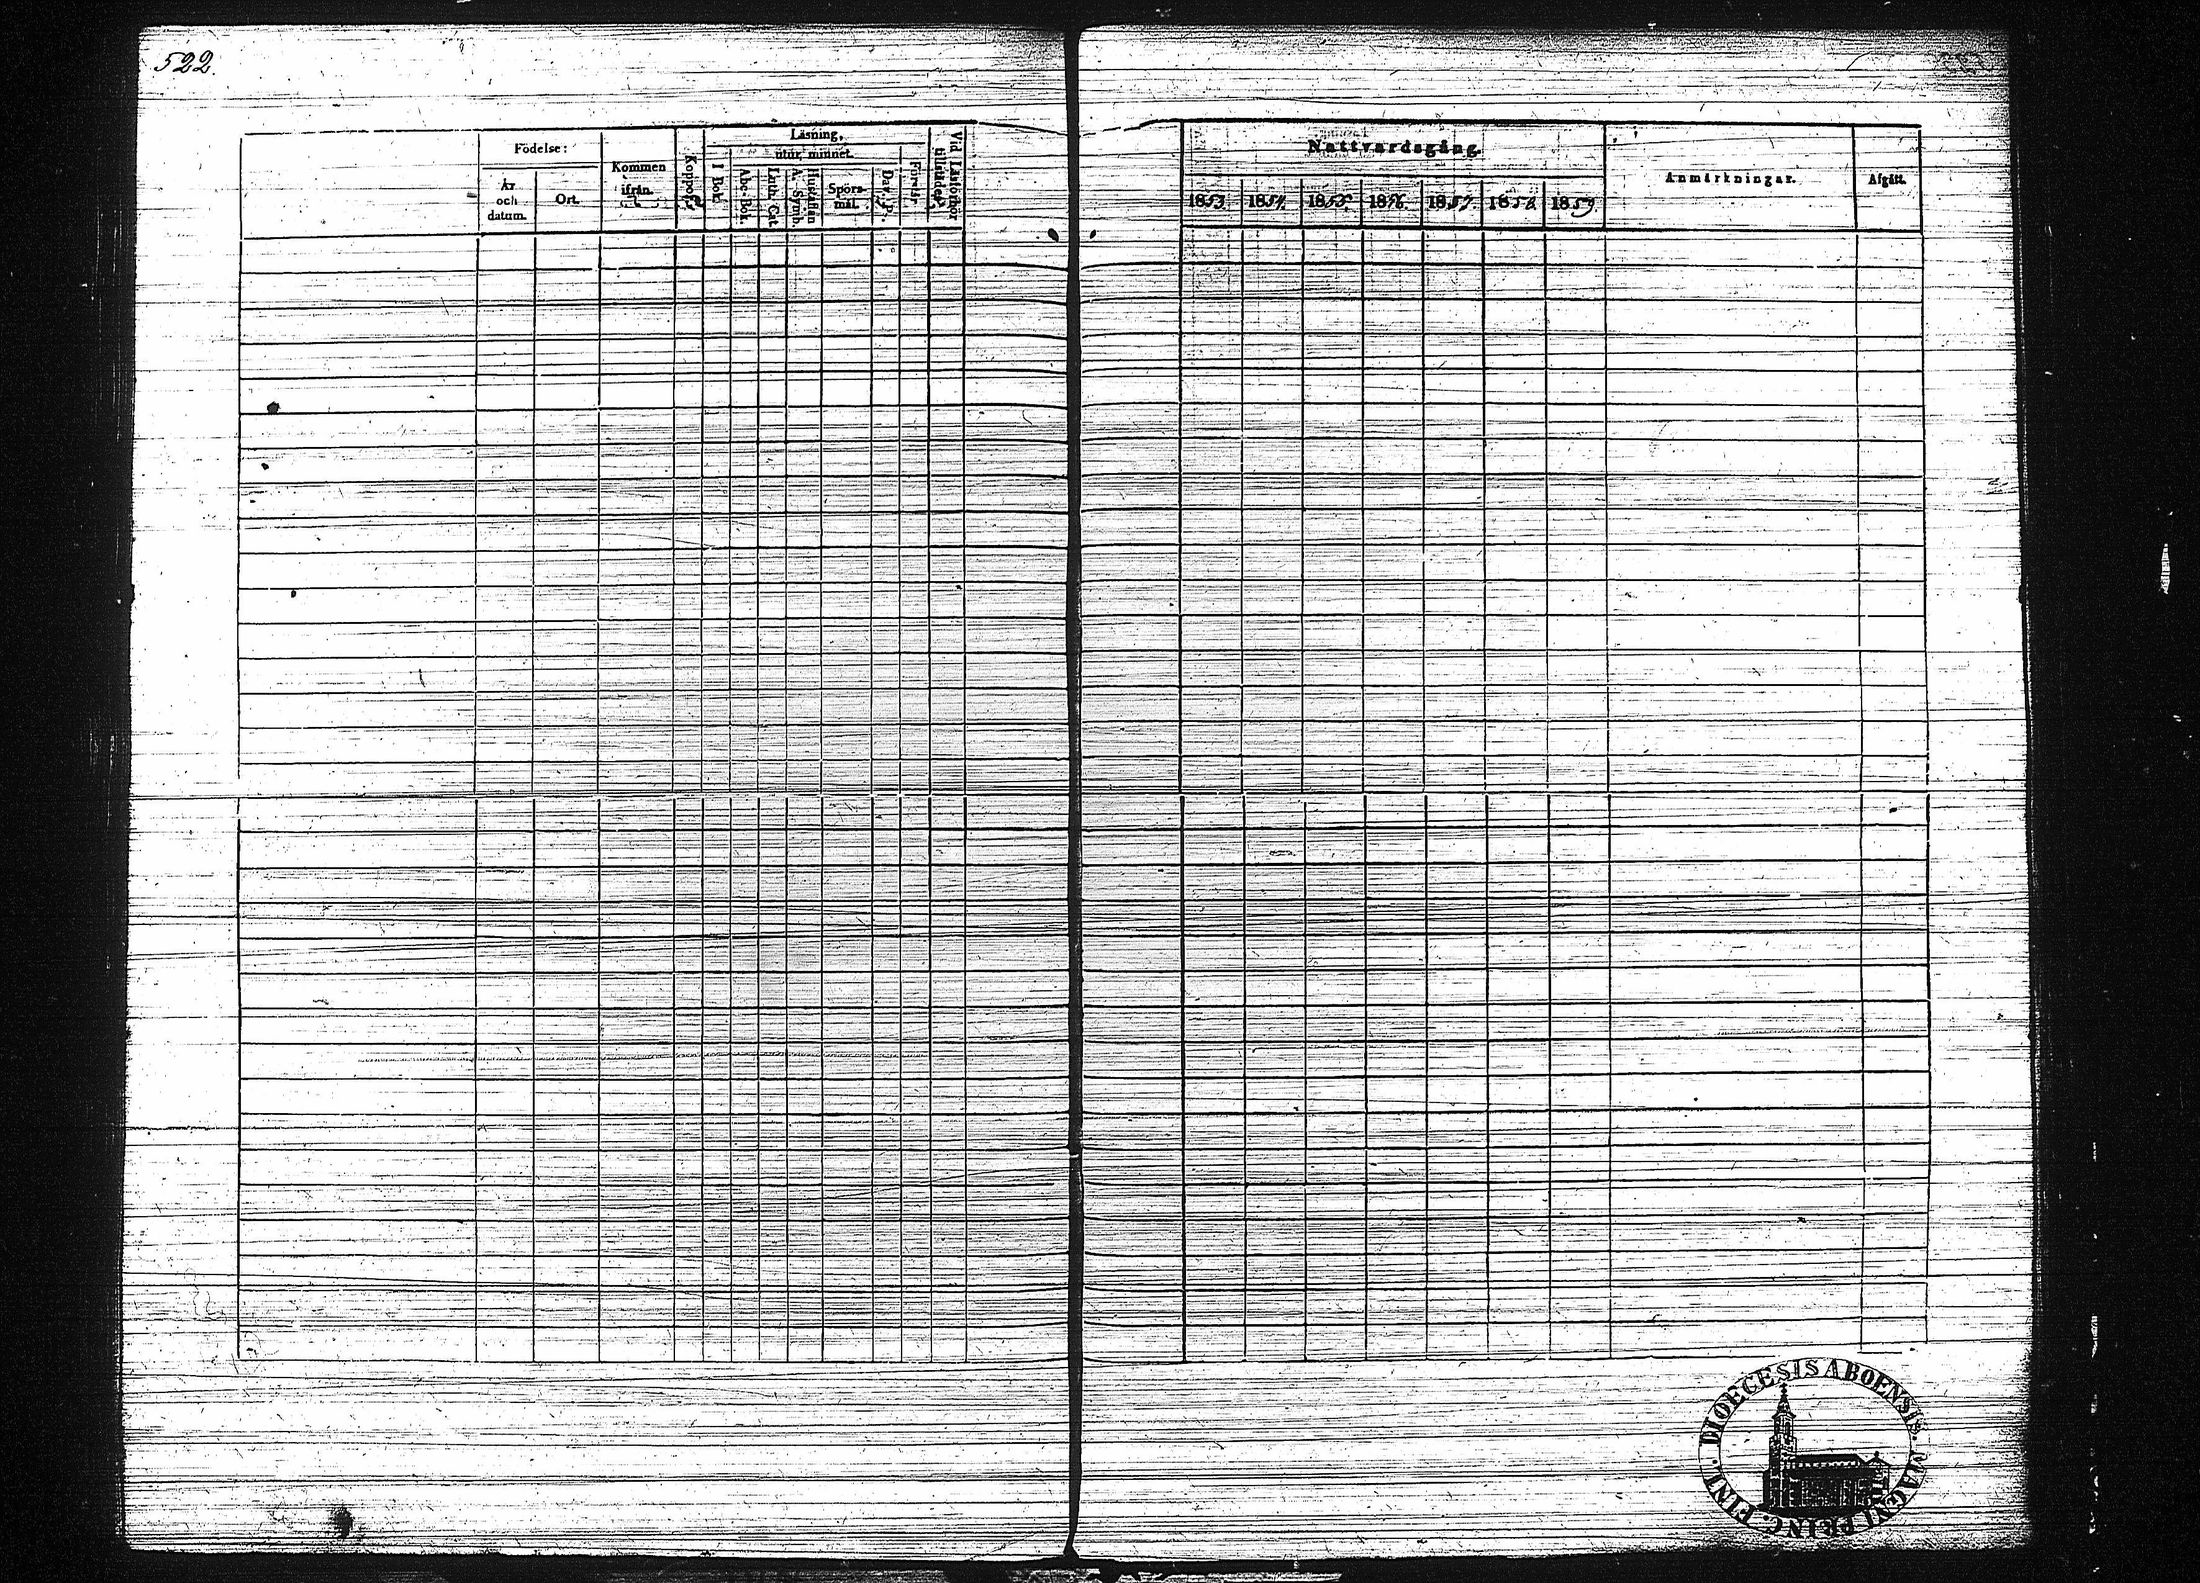 522.
Födelse:
År
och
datum.
Ort.
Kommen
ifrån.
Koppor.
Läsning,
I Bok.
utur minnet.
Abc-Bok.
Luth. Cat.
Hustaflan
A. Symb.
Spörs-
mål.
Dav. P.
Förstår.
Vid Läsförhör
tillstädes.
Nattvardsgång.
1853. 1854. 1855. 1856. 1857. 1858. 1859.
Anmärkningar.
Afgått.
DIOECESIS ABOENSIS. MAGNI PRINC. FINL.